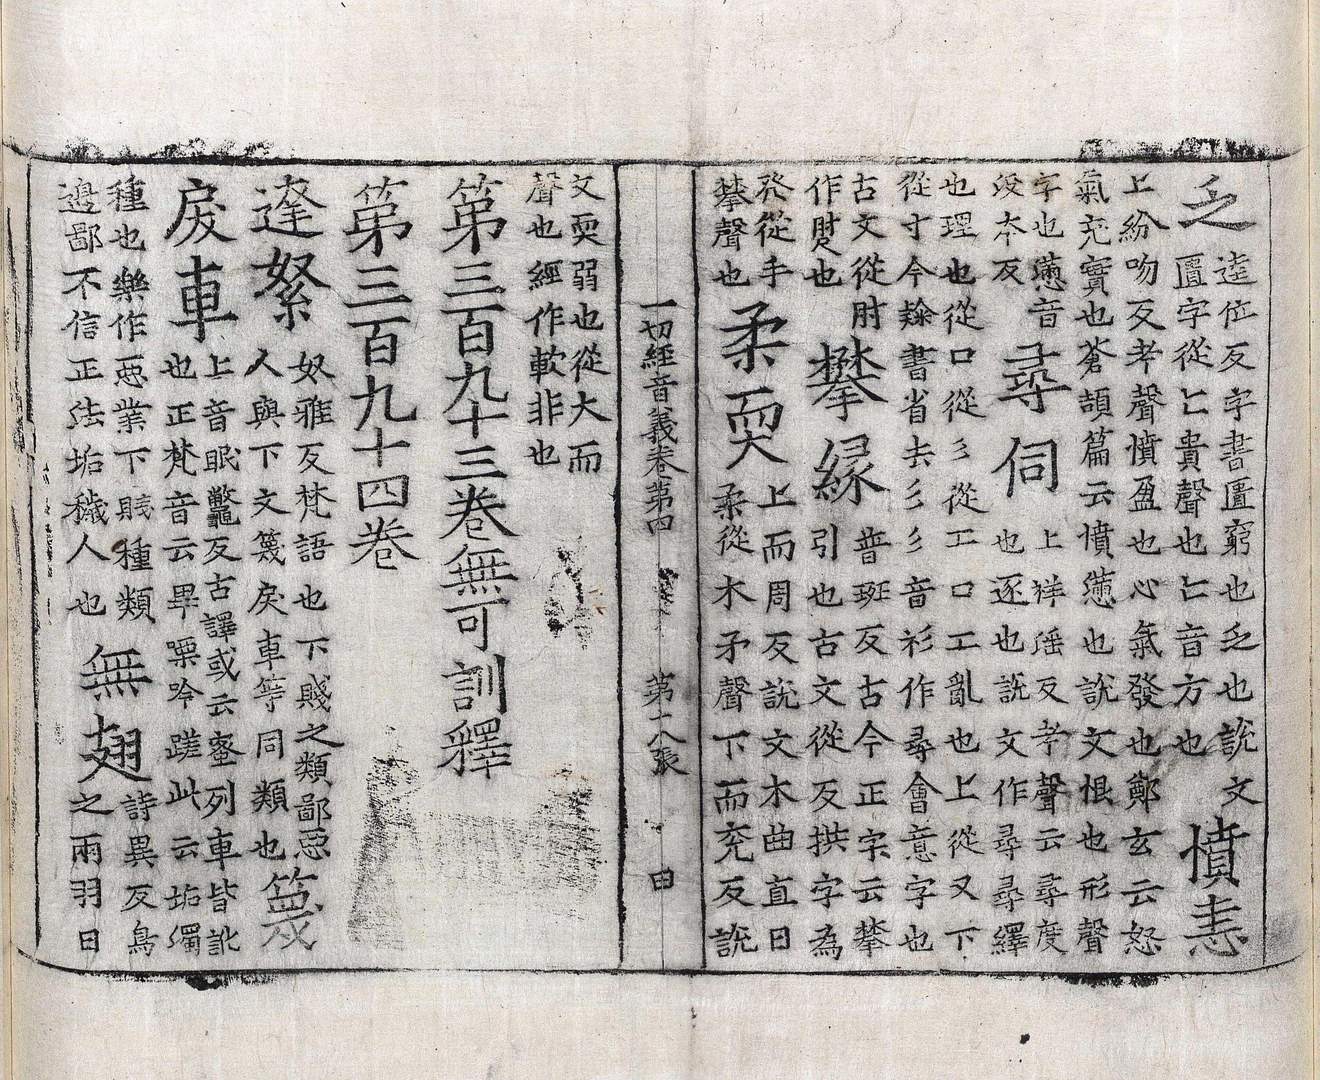 乏
逵位反字書匱窮也乏也說文
匱字從匚貴聲也匚音方也
憤恚
上紛吻反考聲憤盈也心氣發也鄭玄云怒
氣充實也蒼頡篇云憤懣也說文恨也形聲
字也懣音
沒本反
尋伺
上祥婬反考聲云尋度
也逐也說文作尋尋繹
也理也從口從彡從工口工亂也上從又下
從寸今隸書省去彡彡音衫作尋會意字也
古文從肘
作也
攀緣
普班反古今正字云攀
引也古文從反拱字為
癶從手
攀聲也
柔耎
上而周反說文木曲直曰
柔從木矛聲下而兖反說
一切經音義卷第四 第十八張
文耎弱也從大而
聲也經作軟非也
第三百九十三卷無可訓釋
第三百九十四卷
達絮
奴雅反梵語也下賤之類鄙惡
人與下文篾戾車等同類也
篾
戾車
上音眠鼈反古譯或云蜜列車皆訛
也正梵音云畢㗚吟蹉此云垢濁
種也樂作惡業下賤種類
邊鄙不信正法垢穢人也
無翅
詩異反鳥
之兩羽曰